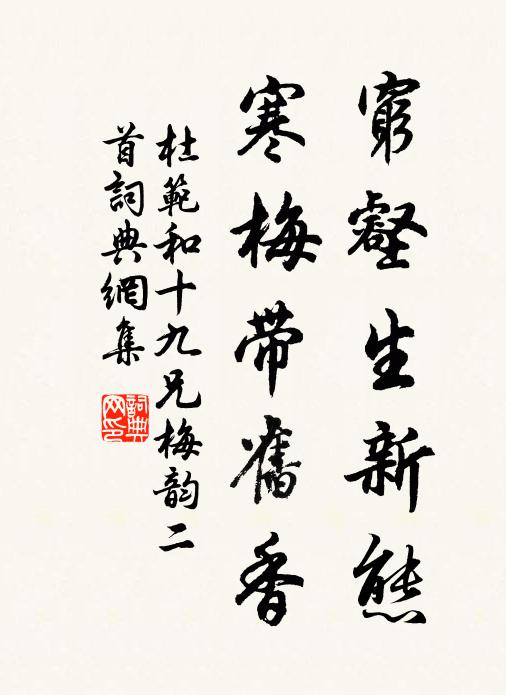 窮壑生新態
寒梅帶舊香
杜範和十九兄梅韵二
首詞典網集
詞典
网印